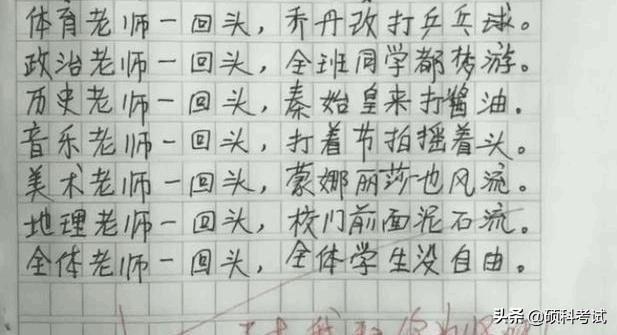 体育老师一回头，乔丹改打乒乓球。
政治老师一回头，全班同学都梦游。
历史老师一回头，秦始皇来打酱油。
音乐老师一回头，打着节拍摇着头。
美术老师一回头，蒙娜丽莎也风流。
地理老师一回头，校门前面泥石流。
全体老师一回头，全体学生没自由。
头条 @硕科考试